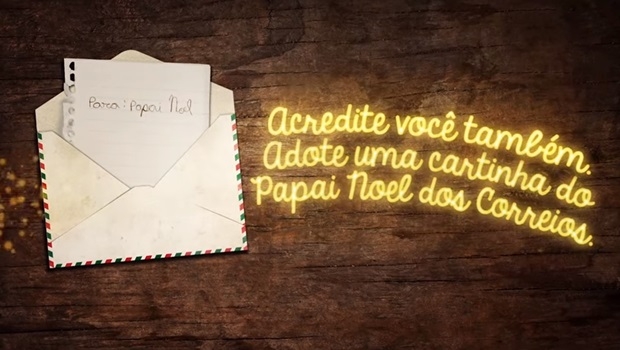 Para: Papai Noel
Acredite você também.
Adote uma cartinha do
Papai Noel dos Correios.